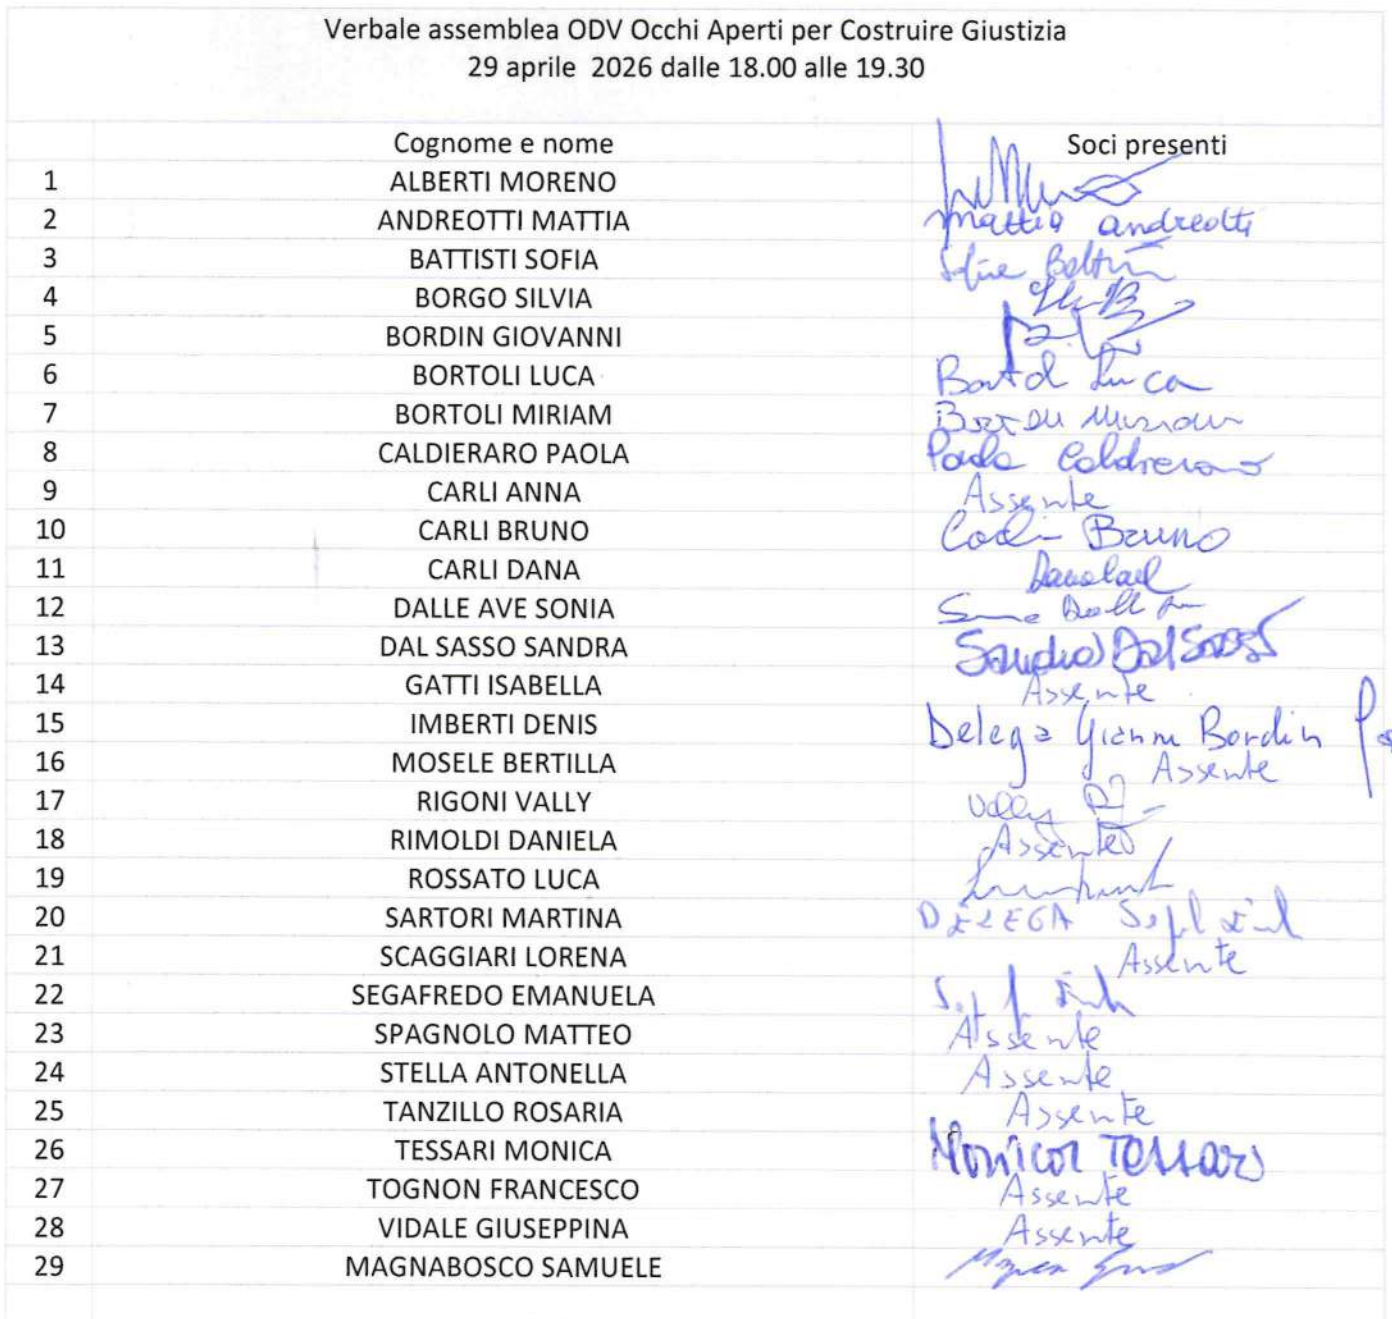 Verbale assemblea ODV Occhi Aperti per Costruire Giustizia
29 aprile 2026 dalle 18.00 alle 19.30
Cognome e nome Soci presenti
1 ALBERTI MORENO
2 ANDREOTTI MATTIA Mattia Andreotti
3 BATTISTI SOFIA
4 BORGO SILVIA
5 BORDIN GIOVANNI
6 BORTOLI LUCA Bortol Luca
7 BORTOLI MIRIAM Bortoli Miriam
8 CALDIERARO PAOLA Paola Caldieraro
9 CARLI ANNA Assente
10 CARLI BRUNO Carli Bruno
11 CARLI DANA
12 DALLE AVE SONIA
13 DAL SASSO SANDRA Sandra Dal Sasso
14 GATTI ISABELLA Assente
15 IMBERTI DENIS Delega Gianni Bordin
16 MOSELE BERTILLA Assente
17 RIGONI VALLY Vally
18 RIMOLDI DANIELA Assente
19 ROSSATO LUCA
20 SARTORI MARTINA DELEGA
21 SCAGGIARI LORENA Assente
22 SEGAFREDO EMANUELA
23 SPAGNOLO MATTEO Assente
24 STELLA ANTONELLA Assente
25 TANZILLO ROSARIA Assente
26 TESSARI MONICA Monica Tessari
27 TOGNON FRANCESCO Assente
28 VIDALE GIUSEPPINA Assente
29 MAGNABOSCO SAMUELE